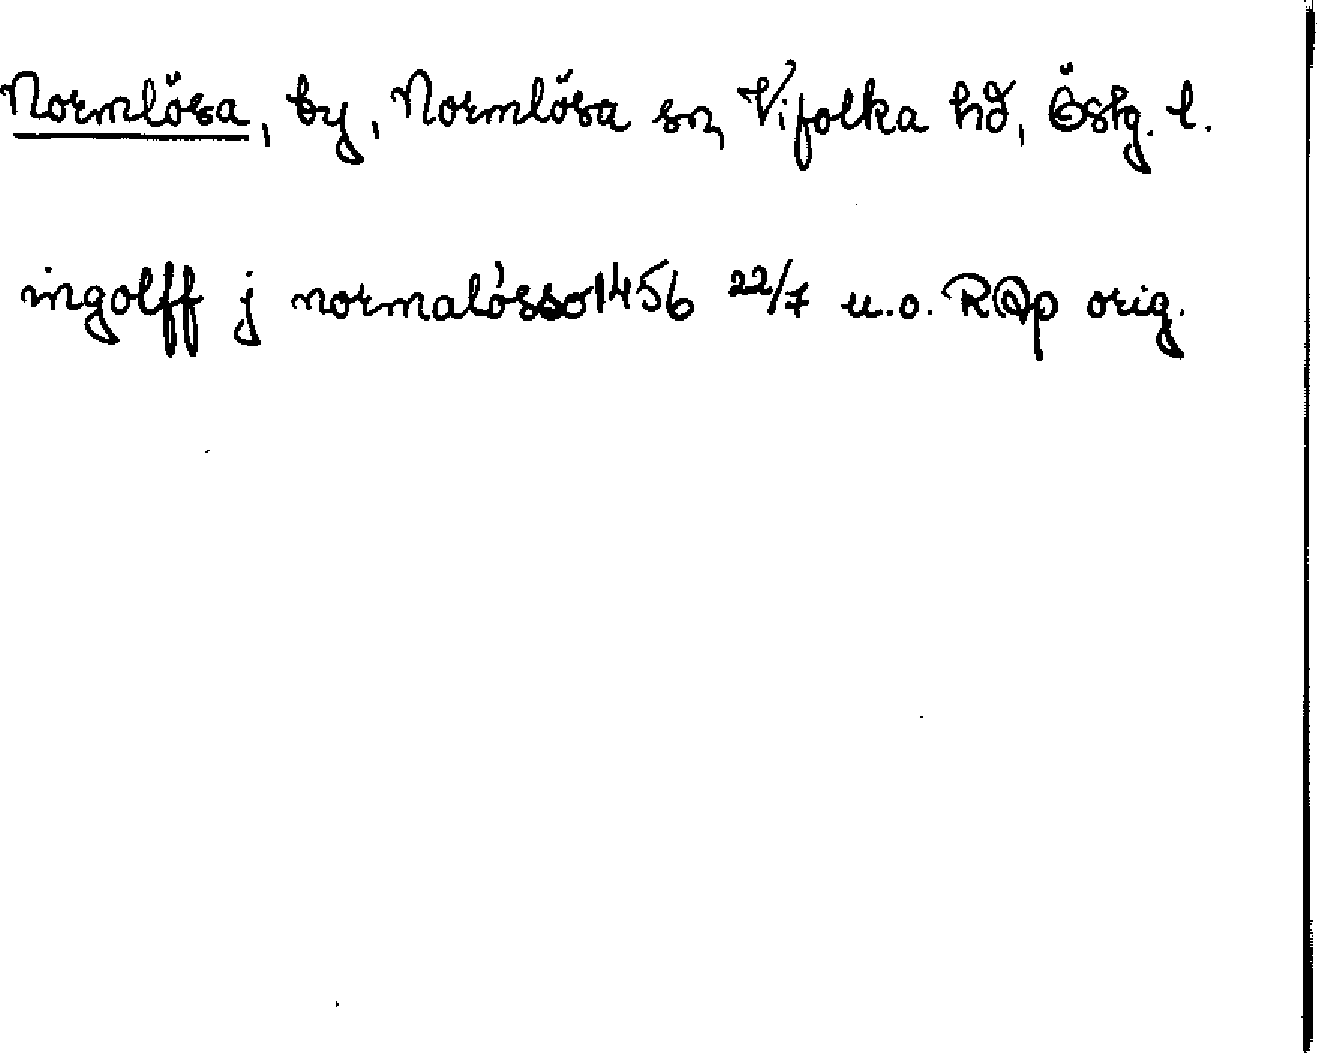 Normlösa, by, Normlösa sn, Vifolka hd, Östg. l.
ingolff j normalósso 1456 22/7 u.o. RAp orig.